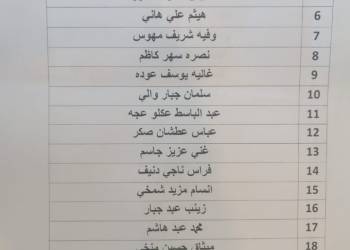 6 هيثم علي هاني
7 وفيه شريف مهوس
8 نصره سهر كاظم
9 غاليه يوسف عوده
10 سلمان جبار والي
11 عبد الباسط عكلو عجه
12 عباس عطشان صكر
13 غني عزيز جاسم
14 فراس ناجي دنيف
15 انسام مزيد شمخي
16 زينب عبد جبار
17 محمد عبد هاشم
18 ميثاق حسين